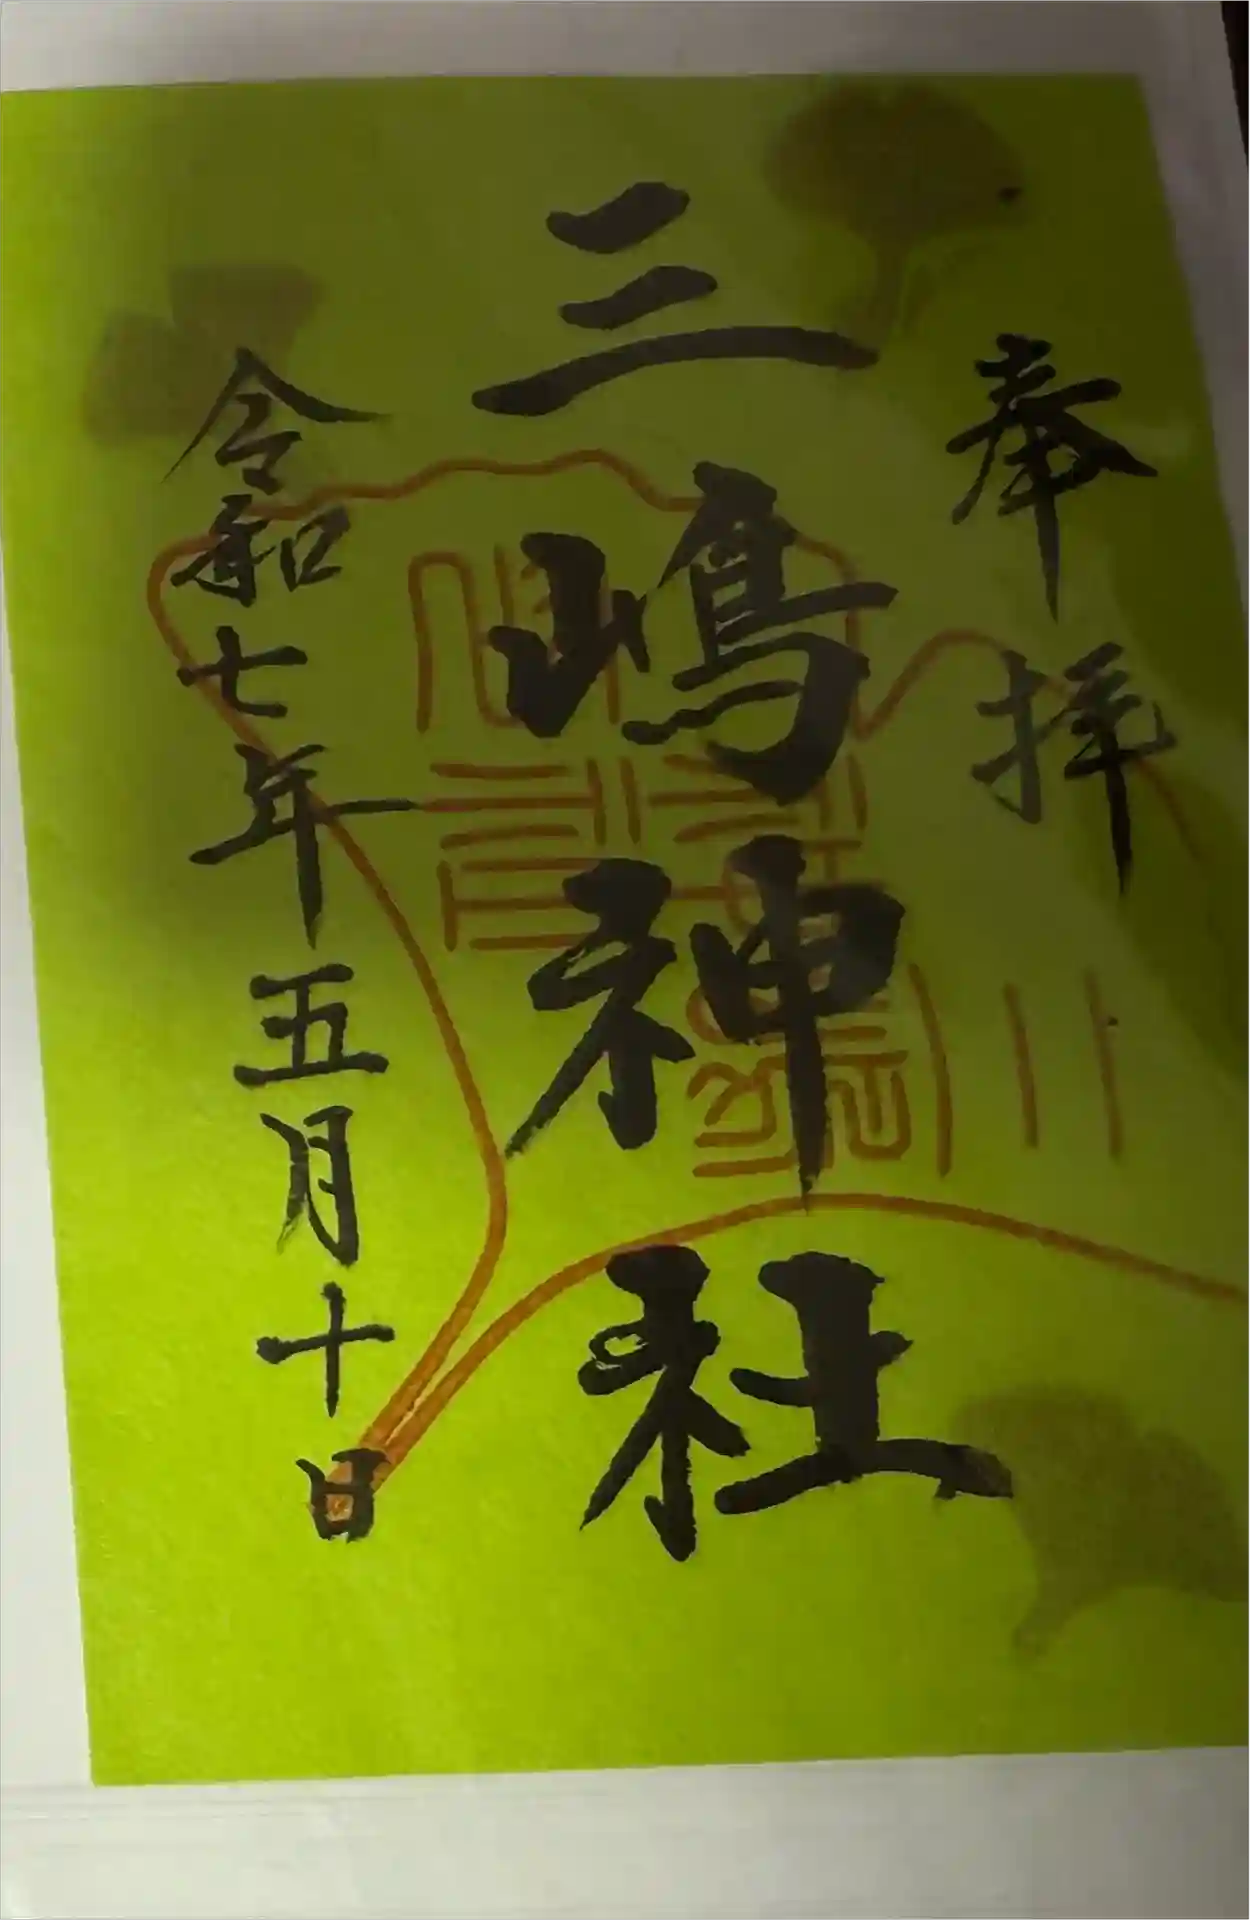 奉拝
三嶋神社
令和七年五月十日